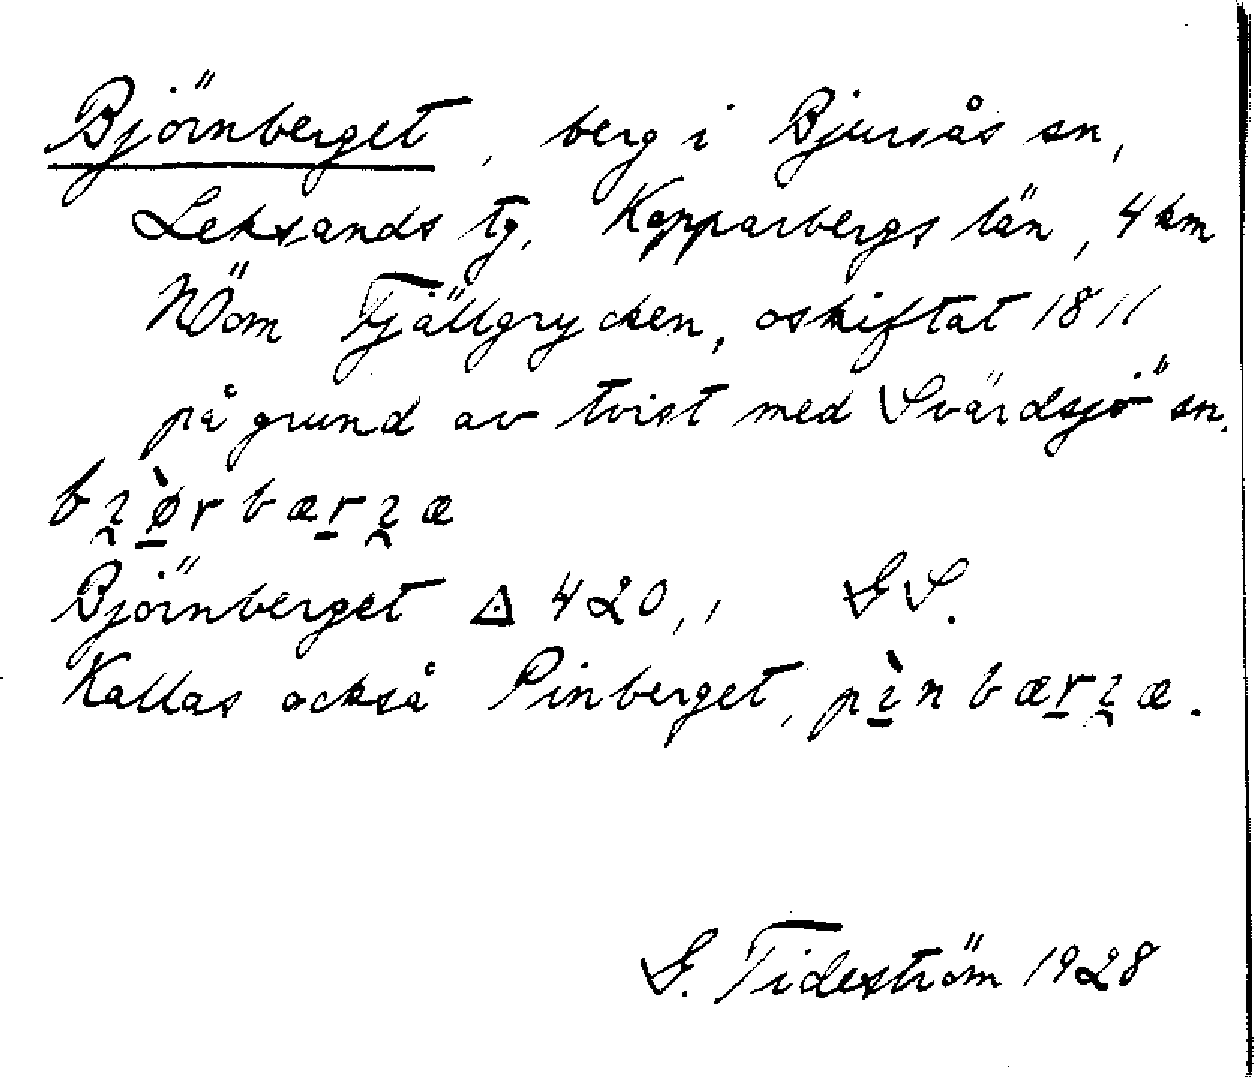 Björnberget, berg i Bjursås sn,
Leksands tg, Kopparbergs län, 4 km
NÖ om Fjällgrycken, oskiftat 1811
på grund av tvist med Svärdsjö sn.
Björnberget ◬ 420,1 GS.
Kallas också Pinberget,
G. Tideström 1928